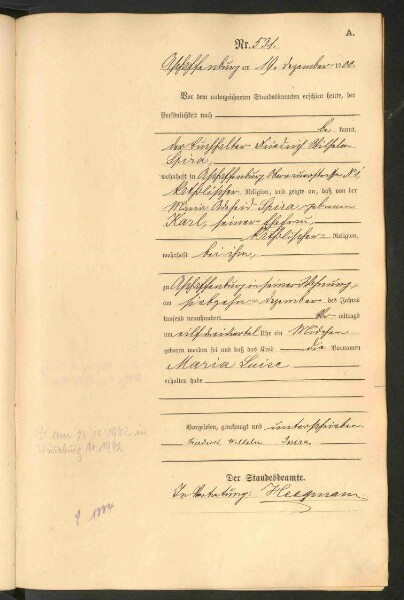 A.
Nr. 531.
Aschaffenburg am 19. Dezember 1900.
Vor dem unterzeichneten Standesbeamten erschien heute, der
Persönlichkeit nach
be kannt,
der Buchhalter Friedrich Wilhelm
Spira,
wohnhaft in Aschaffenburg
katholischer Religion, und zeigte an, daß von der
Maria Spira geborenen
Karl, seiner Ehefrau,
katholischer Religion,
wohnhaft bei ihm,
zu Aschaffenburg in seiner Wohnung,
am siebzehn ten Dezember des Jahres
tausend neunhundert Vor mittags
um elf dreiviertel Uhr ein Mädchen
geboren worden sei und daß das Kind die Vornamen
Maria Luise
erhalten habe
Vorgelesen, genehmigt und unterschrieben
Friedrich Wilhelm Spira
Der Standesbeamte.
In Vertretung: Heegmann